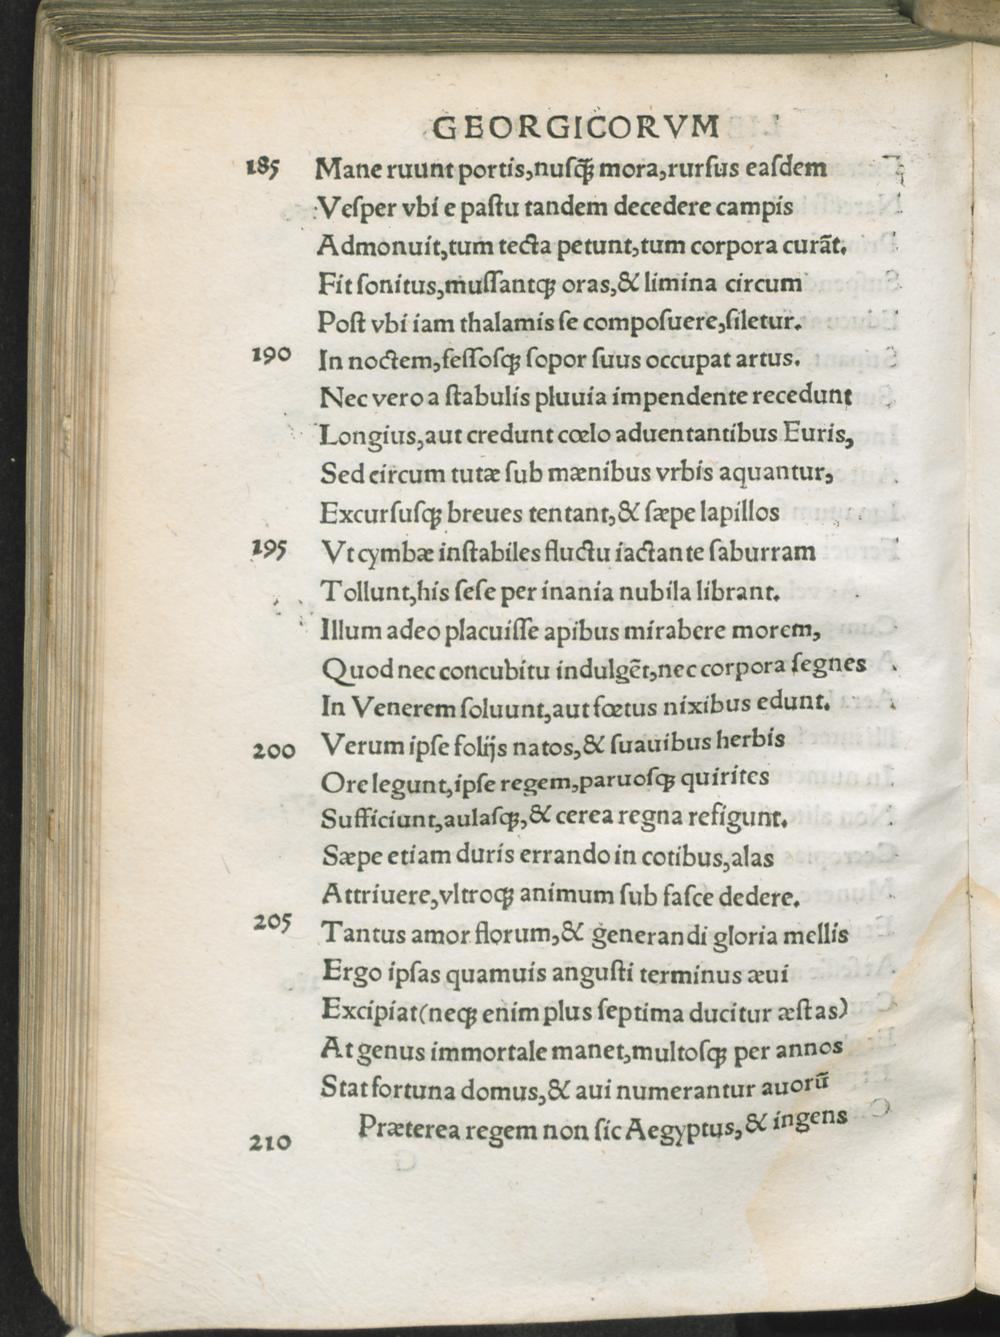 GEORGICORVM
185 Mane ruunt portis,nuſq̃ mora,rurſus eaſdem
Veſper vbi e paſtu tandem decedere campis
Admonuit,tum tecta petunt,tum corpora curãt.
Fit ſonitus,muſſantq; oras,& limina circum
Poſt vbi iam thalamis ſe compoſuere,ſiletur.
190 In noctem,feſſoſq; ſopor ſuus occupat artus.
Nec vero a ſtabulis pluuia impendente recedunt
Longius,aut credunt cœlo aduentantibus Euris,
Sed circum tutæ ſub mænibus vrbis aquantur,
Excurſuſq; breues tentant,& ſæpe lapillos
195 Vt cymbæ inſtabiles fluctu iactante ſaburram
Tollunt,his ſeſe per inania nubila librant.
Illum adeo placuiſſe apibus mirabere morem,
Quod nec concubitu indulgẽt,nec corpora ſegnes
In Venerem ſoluunt,aut fœtus nixibus edunt.
200 Verum ipſe folijs natos,& ſuauibus herbis
Ore legunt,ipſe regem,paruoſq; quirites
Sufficiunt,aulaſq;,& cerea regna refigunt.
Sæpe etiam duris errando in cotibus,alas
Attriuere,vltroq; animum ſub faſce dedere.
205 Tantus amor florum,& generandi gloria mellis
Ergo ipſas quamuis anguſti terminus æui
Excipiat(neq; enim plus ſeptima ducitur æſtas)
At genus immortale manet,multoſq; per annos
Stat fortuna domus,& aui numerantur auorũ
210 Præterea regem non ſic Aegyptus,& ingens